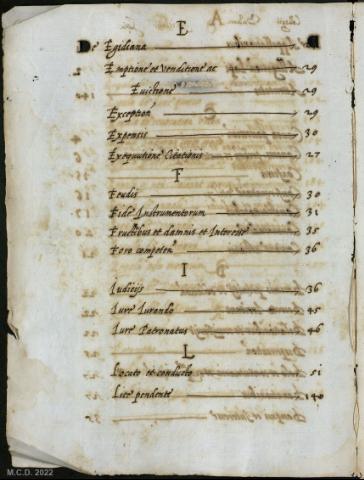 E
De Egidiana
Emptione et Venditione ac 29
Euictione 29
Exception 29
Expensis 30
Exequutione Citationis 27
F
Feudis 30
Fide Instrumentorum 31
Fructibus et damnis et Interesse 35
Foro competen 36
I
Iudicijs 36
Iure Iurando 45
Iure Patronatus 46
L
Locato et conducto 51
Lite pendente 140
M.C.D. 2022